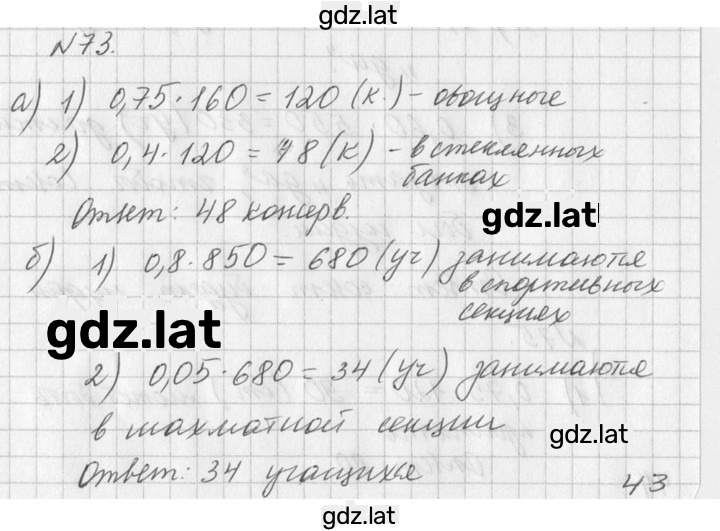 gdz.lat
N73.
а) 1) 0,75·160=120 (к.) - овощные
2) 0,4·120=48 (к) - в стеклянных
банках
Ответ: 48 консерв.
gdz.lat
б) 1) 0,8·850=680 (уч) занимаются
в спортивных
секциях
gdz.lat
2) 0,05·680=34 (уч) занимаются
в шахматной секции
gdz.lat
Ответ: 34 учащихся
43
gdz.lat